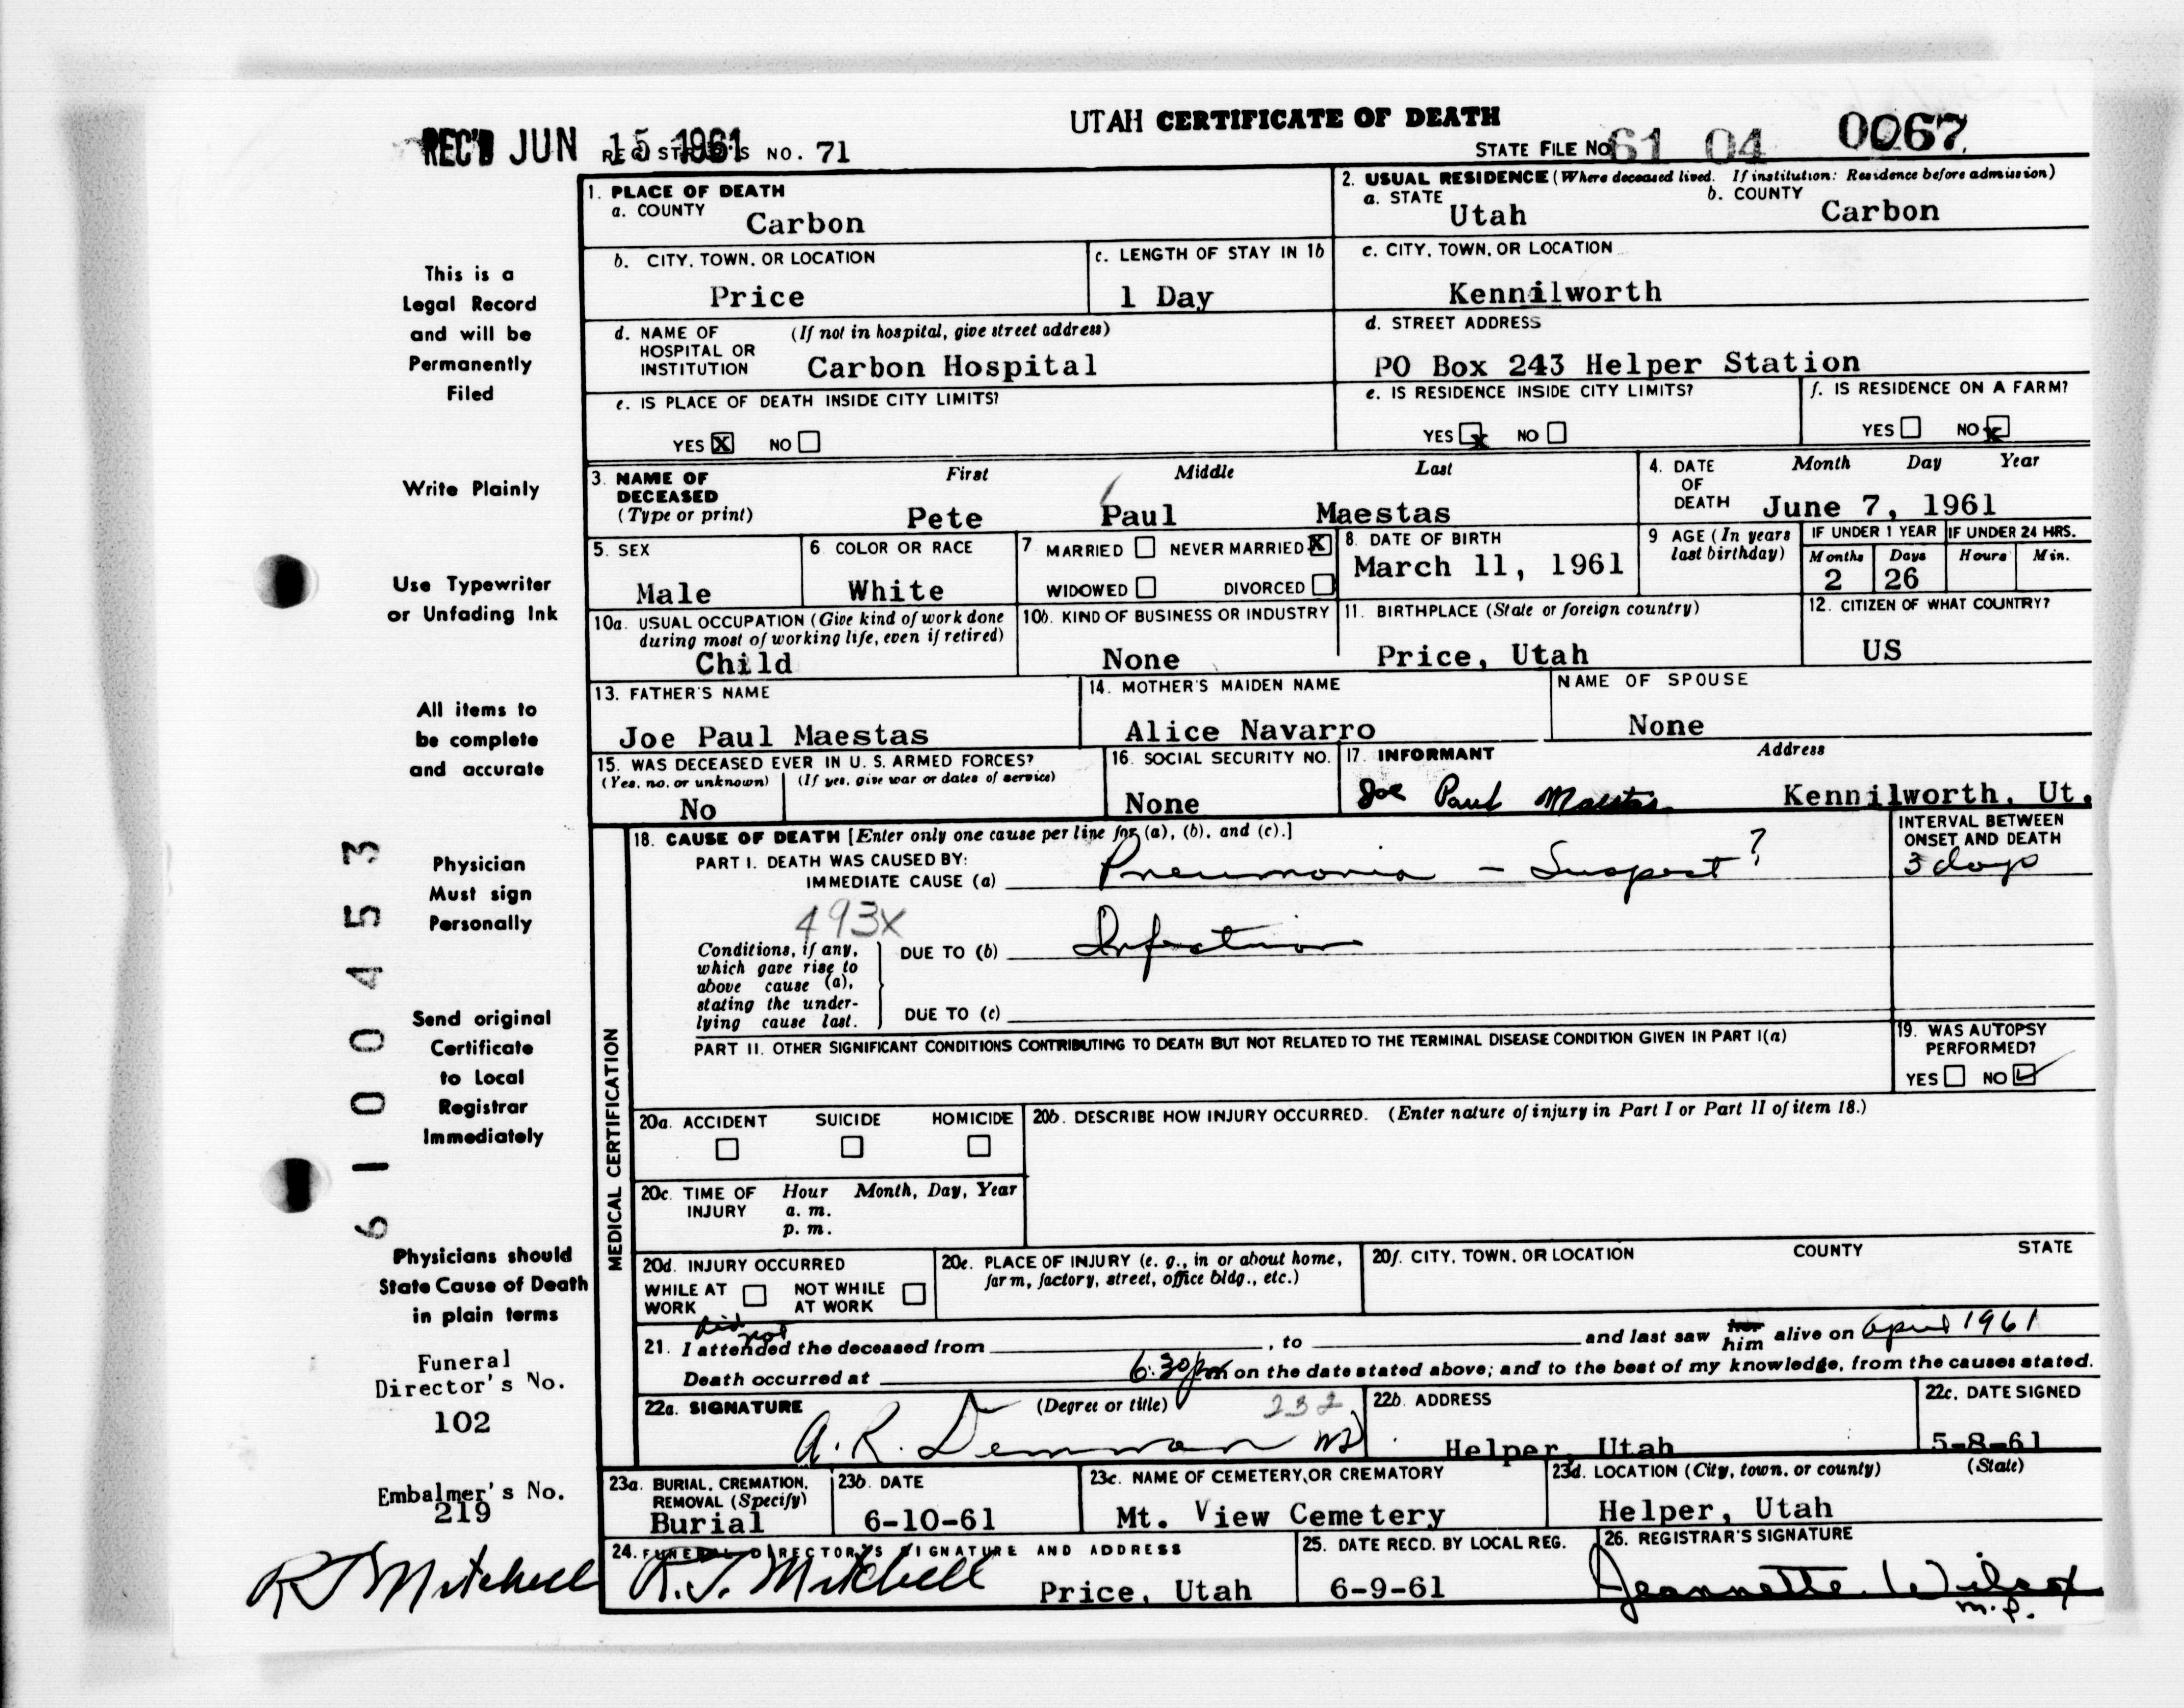 UTAH CERTIFICATE OF DEATH
REC'D JUN 15 1961 REGISTRAR'S NO. 71
STATE FILE NO. 61 04 0067
This is a
Legal Record
and will be
Permanently
Filed
Write Plainly
Use Typewriter
or Unfading Ink
All items to
be complete
and accurate
Physician
Must sign
Personally
Send original
Certificate
to Local
Registrar
Immediately
Physicians should
State Cause of Death
in plain terms
Funeral
Director's No.
102
Embalmer's No.
219
R J Mitchell
6 1 0 0 4 5 3
1. PLACE OF DEATH
a. COUNTY
Carbon
2. USUAL RESIDENCE (Where deceased lived. If institution: Residence before admission)
a. STATE Utah
b. COUNTY Carbon
b. CITY, TOWN, OR LOCATION
Price
c. LENGTH OF STAY IN 1b
1 Day
c. CITY, TOWN, OR LOCATION
Kennilworth
d. NAME OF (If not in hospital, give street address)
HOSPITAL OR
INSTITUTION Carbon Hospital
d. STREET ADDRESS
PO Box 243 Helper Station
e. IS PLACE OF DEATH INSIDE CITY LIMITS?
YES X NO
e. IS RESIDENCE INSIDE CITY LIMITS?
YES x NO
f. IS RESIDENCE ON A FARM?
YES NO x
3. NAME OF DECEASED (Type or print)
First Middle Last
Pete Paul Maestas
4. DATE OF DEATH
Month Day Year
June 7, 1961
5. SEX
Male
6 COLOR OR RACE
White
7 MARRIED NEVER MARRIED X
WIDOWED DIVORCED
8. DATE OF BIRTH
March 11, 1961
9 AGE (In years
last birthday)
IF UNDER 1 YEAR IF UNDER 24 HRS.
Months Days Hours Min.
2 26
10a. USUAL OCCUPATION (Give kind of work done
during most of working life, even if retired)
Child
10b. KIND OF BUSINESS OR INDUSTRY
None
11. BIRTHPLACE (State or foreign country)
Price, Utah
12. CITIZEN OF WHAT COUNTRY?
US
13. FATHER'S NAME
Joe Paul Maestas
14. MOTHER'S MAIDEN NAME
Alice Navarro
NAME OF SPOUSE
None
15. WAS DECEASED EVER IN U. S. ARMED FORCES?
(Yes, no, or unknown) (If yes, give war or dates of service)
No
16. SOCIAL SECURITY NO.
None
17. INFORMANT Address
Joe Paul Maestas Kennilworth, Ut.
MEDICAL CERTIFICATION
18. CAUSE OF DEATH [Enter only one cause per line for (a), (b), and (c).]
PART I. DEATH WAS CAUSED BY:
IMMEDIATE CAUSE (a) Pneumonia - Suspect ?
INTERVAL BETWEEN
ONSET AND DEATH
3 days
493X
Conditions, if any,
which gave rise to
above cause (a),
stating the under-
lying cause last.
DUE TO (b) Infection
DUE TO (c)
PART II. OTHER SIGNIFICANT CONDITIONS CONTRIBUTING TO DEATH BUT NOT RELATED TO THE TERMINAL DISEASE CONDITION GIVEN IN PART I(a)
19. WAS AUTOPSY
PERFORMED?
YES NO ✓
20a. ACCIDENT SUICIDE HOMICIDE
20b. DESCRIBE HOW INJURY OCCURRED. (Enter nature of injury in Part I or Part II of item 18.)
20c. TIME OF INJURY Hour Month, Day, Year
a. m.
p. m.
20d. INJURY OCCURRED
WHILE AT WORK NOT WHILE AT WORK
20e. PLACE OF INJURY (e. g., in or about home,
farm, factory, street, office bldg., etc.)
20f. CITY, TOWN, OR LOCATION COUNTY STATE
did not
21. I attended the deceased from , to and last saw her him alive on April 1961
Death occurred at 6:30 pm on the date stated above; and to the best of my knowledge, from the causes stated.
22a. SIGNATURE (Degree or title) 232
A. R. Demman MD
22b. ADDRESS
Helper, Utah
22c. DATE SIGNED
5-8-61
23a. BURIAL, CREMATION,
REMOVAL (Specify)
Burial
23b. DATE
6-10-61
23c. NAME OF CEMETERY, OR CREMATORY
Mt. View Cemetery
23d. LOCATION (City, town, or county) (State)
Helper, Utah
24. FUNERAL DIRECTOR'S SIGNATURE AND ADDRESS
R. J. Mitchell Price, Utah
25. DATE RECD. BY LOCAL REG.
6-9-61
26. REGISTRAR'S SIGNATURE
Jeannette Wilcox
m.p.